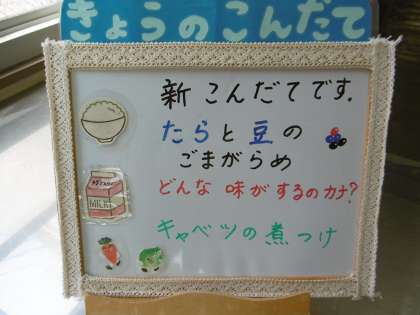 きょうのこんだて
新 こんだてです.
たらと豆の
ごまがらめ
どんな 味がするのカナ?
キャベツの煮つけ
MILK